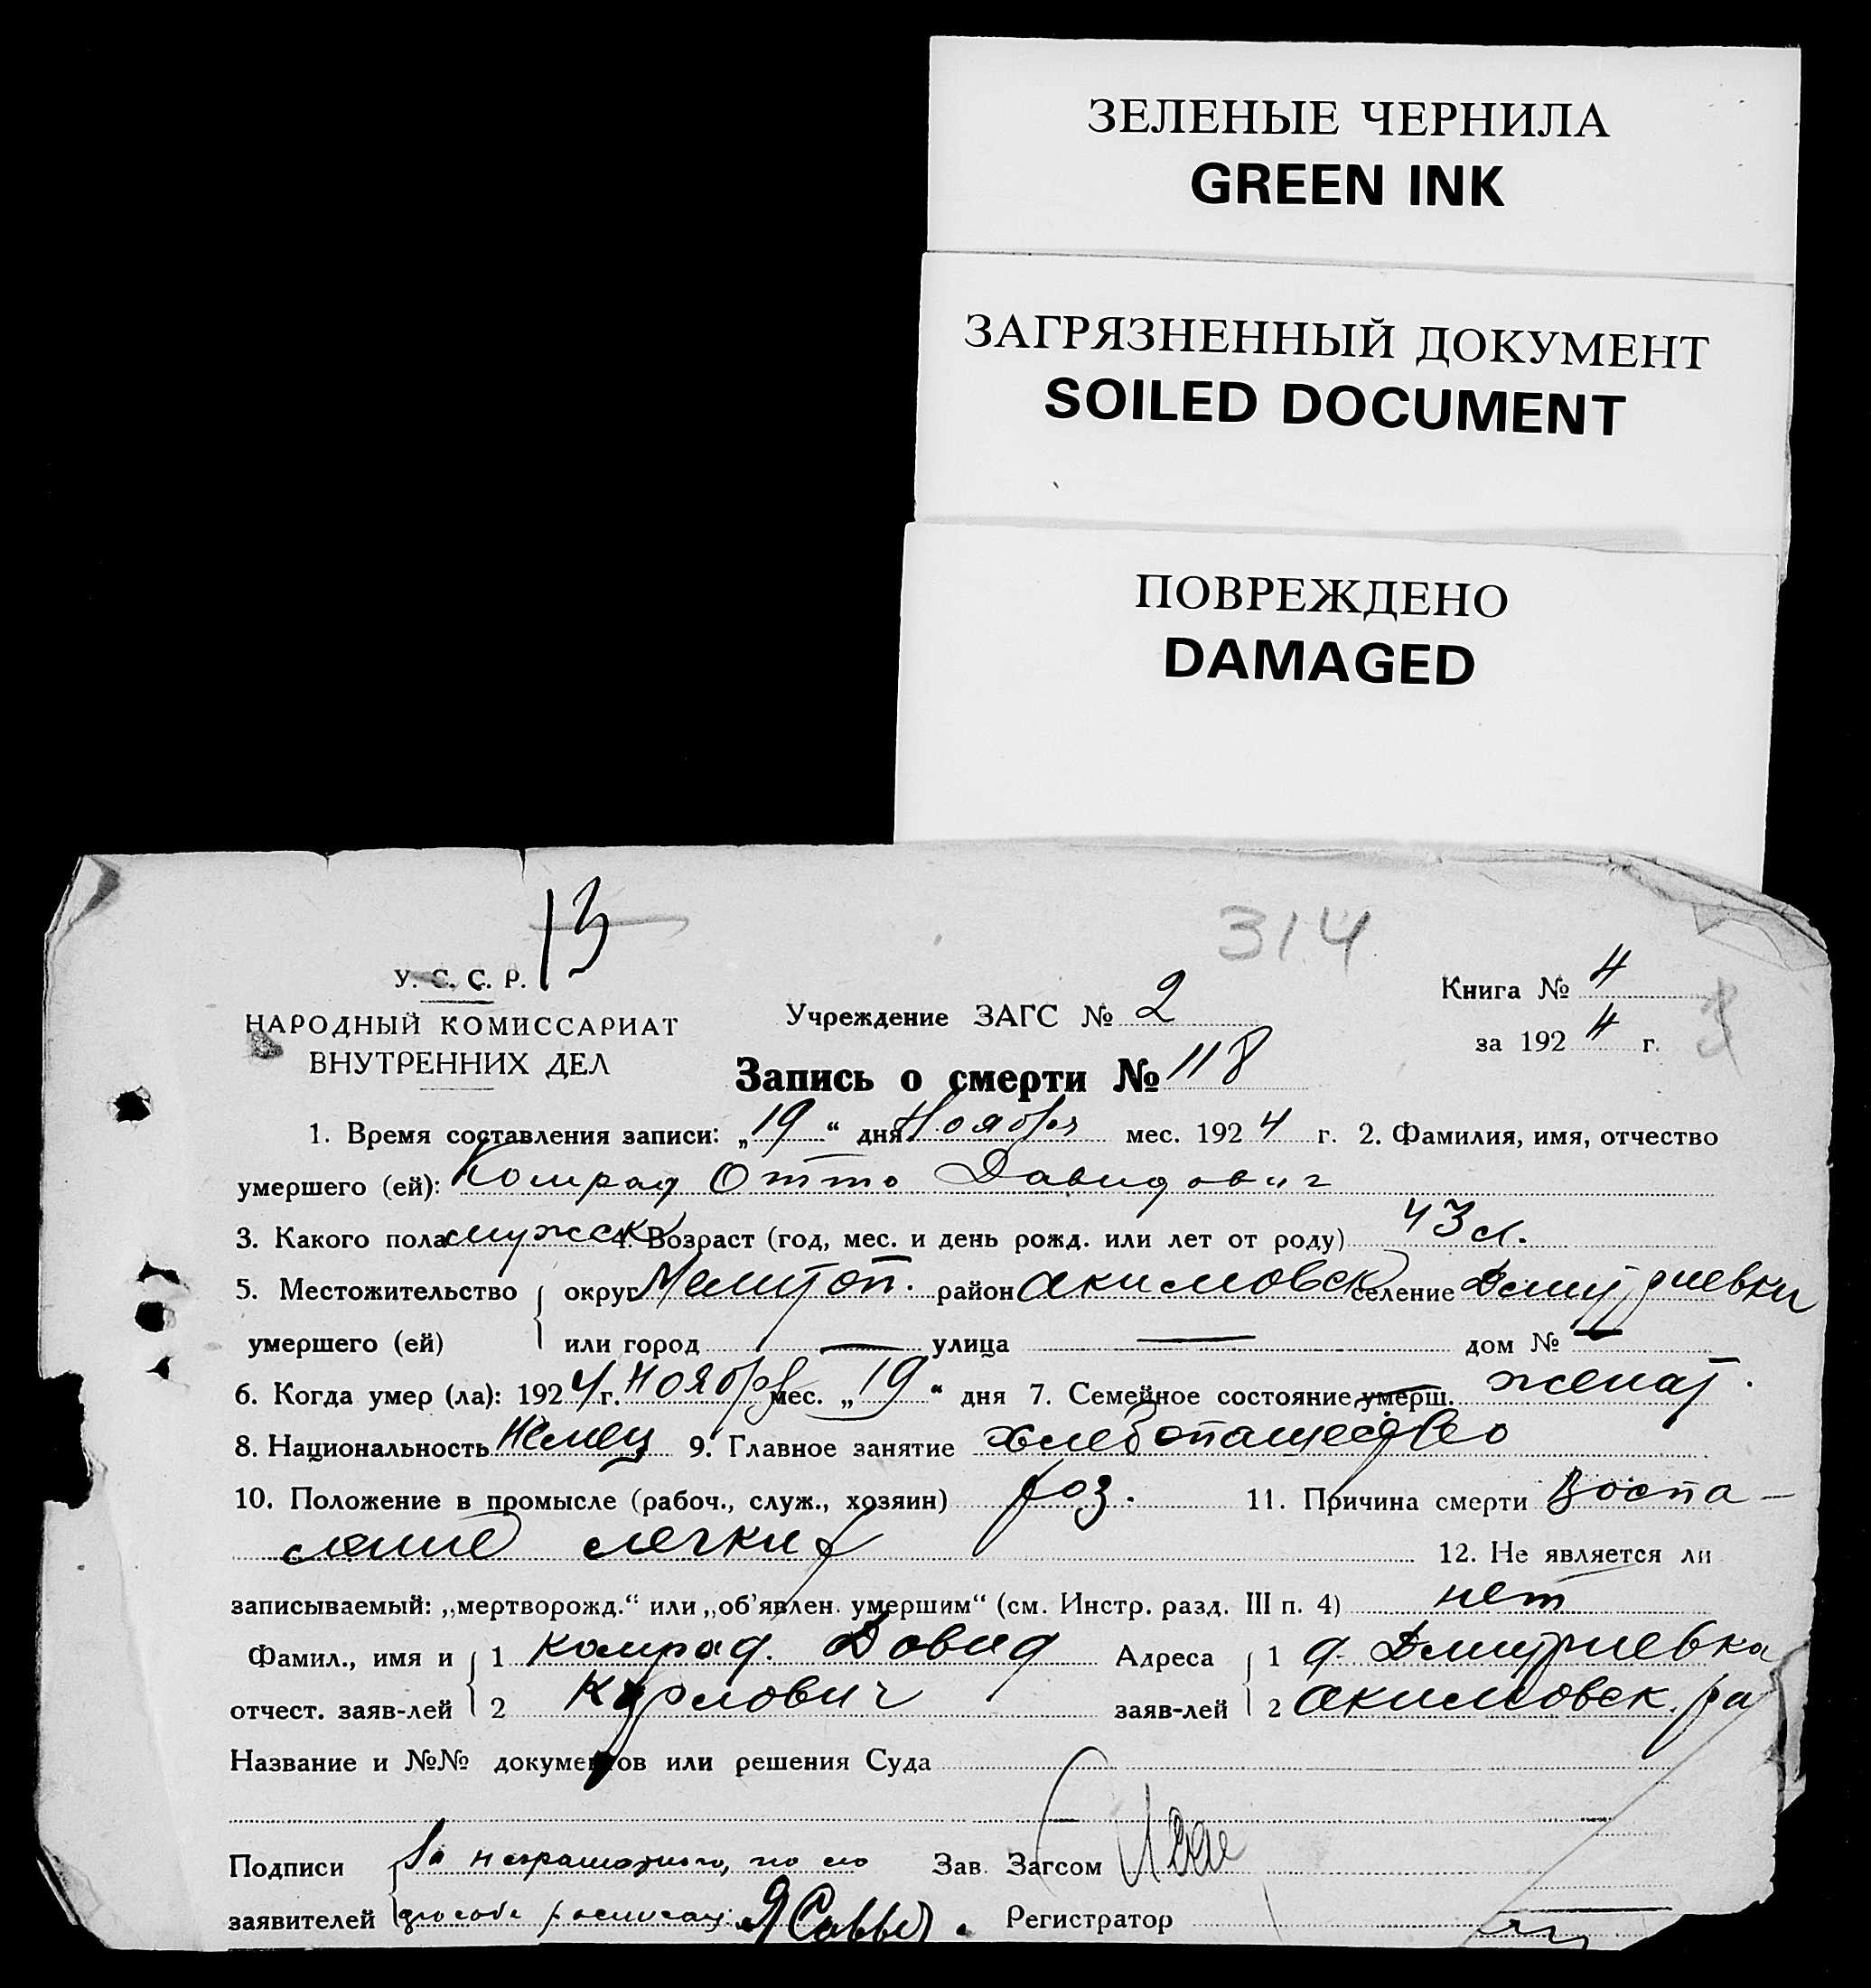 ЗЕЛЕНЫЕ ЧЕРНИЛА
GREEN INK
ЗАГРЯЗНЕННЫЙ ДОКУМЕНТ
SOILED DOCUMENT
ПОВРЕЖДЕНО
DAMAGED
13
314
У. С. С. Р.
НАРОДНЫЙ КОМИССАРИАТ
ВНУТРЕННИХ ДЕЛ
Учреждение ЗАГС № 2
Книга № 4
за 1924 г.
Запись о смерти № 118
1. Время составления записи: „19“ дня Ноября мес. 1924 г. 2. Фамилия, имя, отчество
умершего (ей): Конрад Отто Давидович
3. Какого пола мужск 4. Возраст (год, мес. и день рожд. или лет от роду) 43 л.
5. Местожительство округ Мелитоп. район Акимовск селение Дмитриевки
умершего (ей) или город — улица — дом № —
6. Когда умер (ла): 1924 г. Ноября мес. „19“ дня 7. Семейное состояние умерш. женат.
8. Национальность Немец 9. Главное занятие хлебопашество
10. Положение в промысле (рабоч., служ., хозяин) хоз. 11. Причина смерти Воспа-
ление легких 12. Не является ли
записываемый: „мертворожд.“ или „об'явлен. умершим“ (см. Инстр. разд. III п. 4) нет
Фамил., имя и 1 Конрад. Довид Адреса 1 д. Дмитриевка
отчест. заяв-лей 2 Карлович заяв-лей 2 Акимовск. р-а
Название и №№ документов или решения Суда
Подписи За неграмотного, по его Зав. Загсом
заявителей просьбе росписал Регистратор